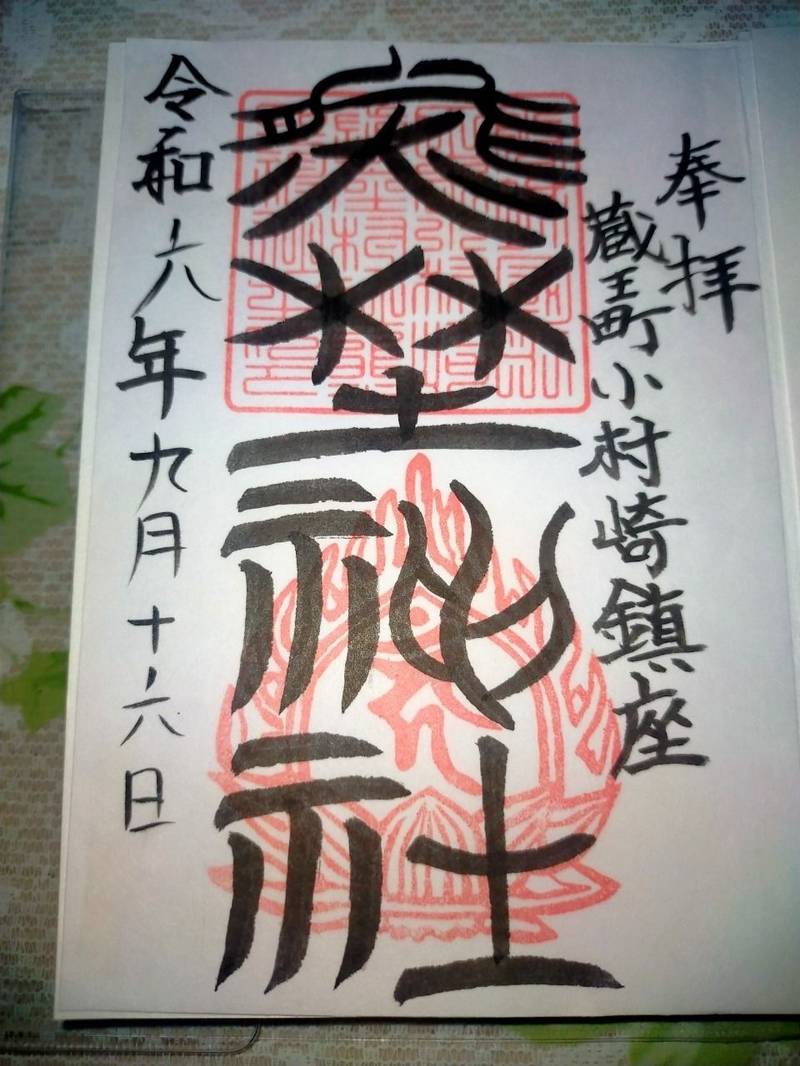 奉拝
蔵王町小村崎鎮座
埜神社
令和六年九月十六日